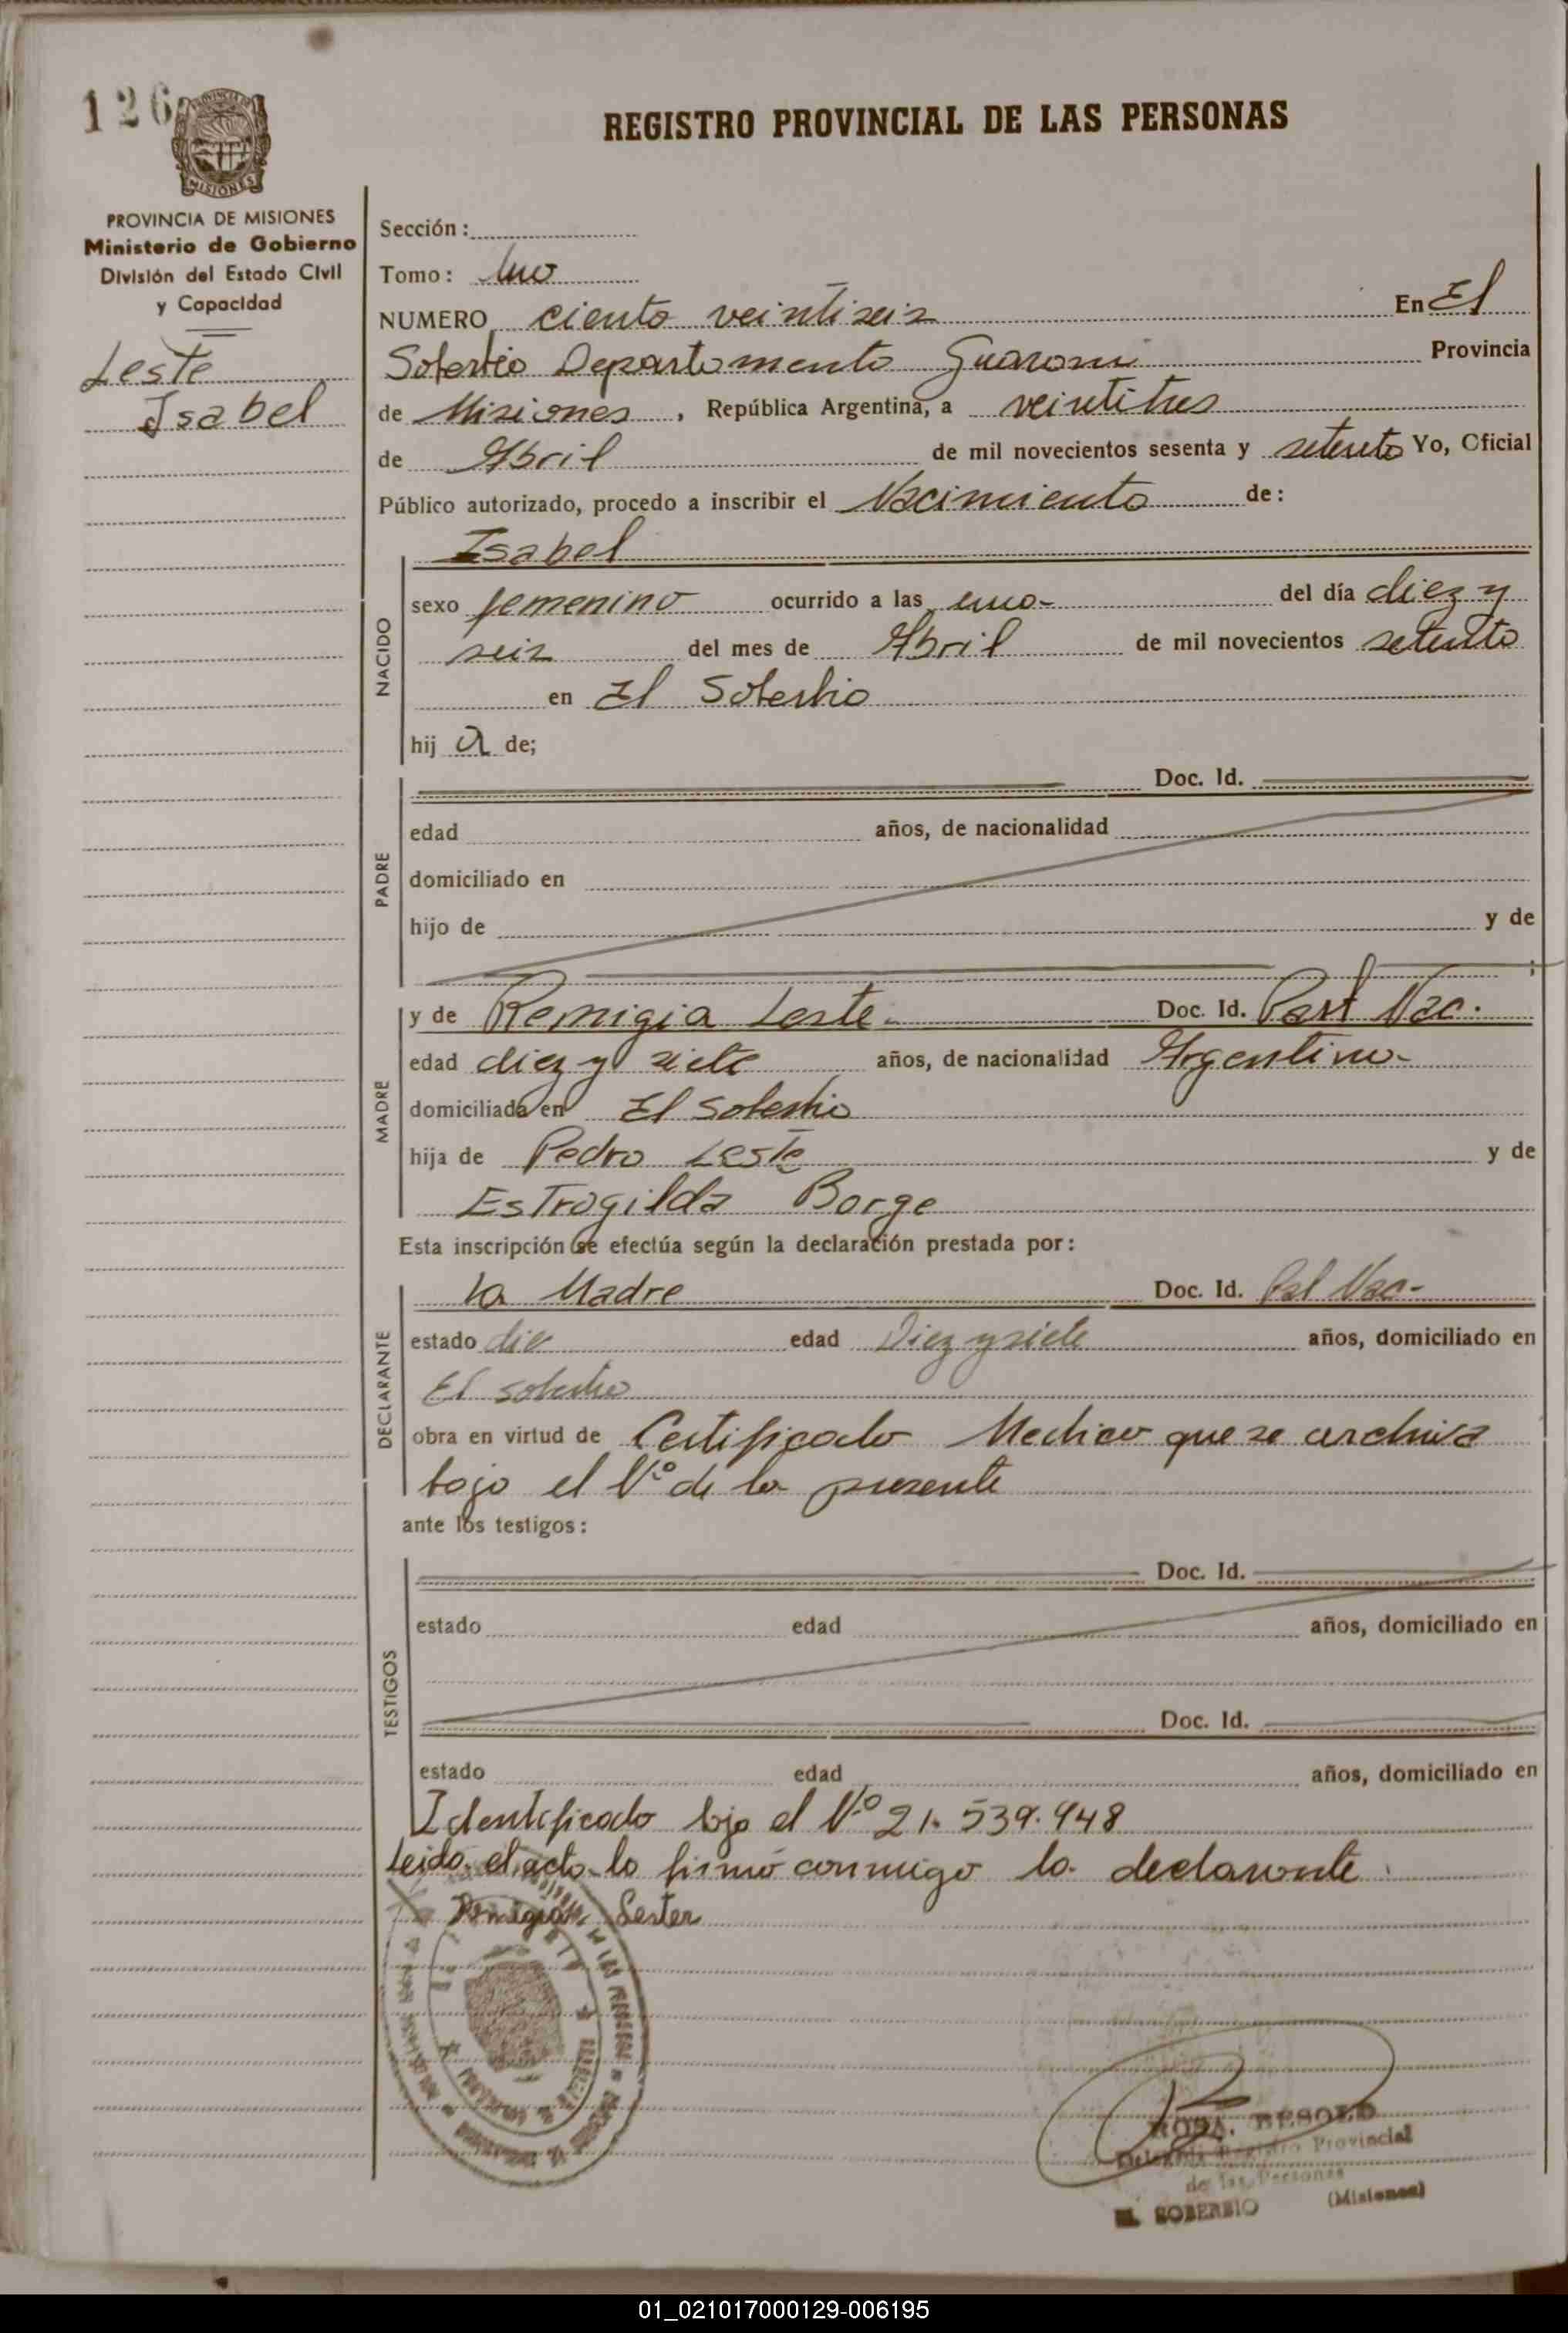 126
REGISTRO PROVINCIAL DE LAS PERSONAS
MISIONES
PROVINCIA DE MISIONES
Ministerio de Gobierno
División del Estado Civil
y Capacidad
Leste
Isabel
Sección:
Tomo: Uno
NUMERO ciento veintiseis En El
Soberbio Departamento Guarani Provincia
de Misiones, República Argentina, a veintitres
de Abril de mil novecientos sesenta y setenta Yo, Oficial
Público autorizado, procedo a inscribir el Nacimiento de:
Isabel
NACIDO
sexo femenino ocurrido a las una del día diez y
seis del mes de Abril de mil novecientos setenta
en El Soberbio
hij a de;
PADRE
Doc. Id.
edad años, de nacionalidad
domiciliado en
hijo de y de
;
MADRE
y de Remigia Leste Doc. Id. Part Nac.
edad diez y siete años, de nacionalidad Argentina
domiciliada en El Soberbio
hija de Pedro Leste y de
Estrogilda Borge
Esta inscripción se efectúa según la declaración prestada por:
DECLARANTE
La Madre Doc. Id. Part Nac-
estado edad Diez y siete años, domiciliado en
El Soberbio
obra en virtud de Certificado Medico que se archiva
bajo el Nº de la presente
ante los testigos:
TESTIGOS
Doc. Id.
estado edad años, domiciliado en
Doc. Id.
estado edad años, domiciliado en
Identificado bajo el Nº 21.539.948
Leido el acto lo firmó conmigo la declarante
Remigia Lester
ROSA BESOLD
Delegada Registro Provincial
de las Personas
EL SOBERBIO (Misiones)
01_021017000129-006195